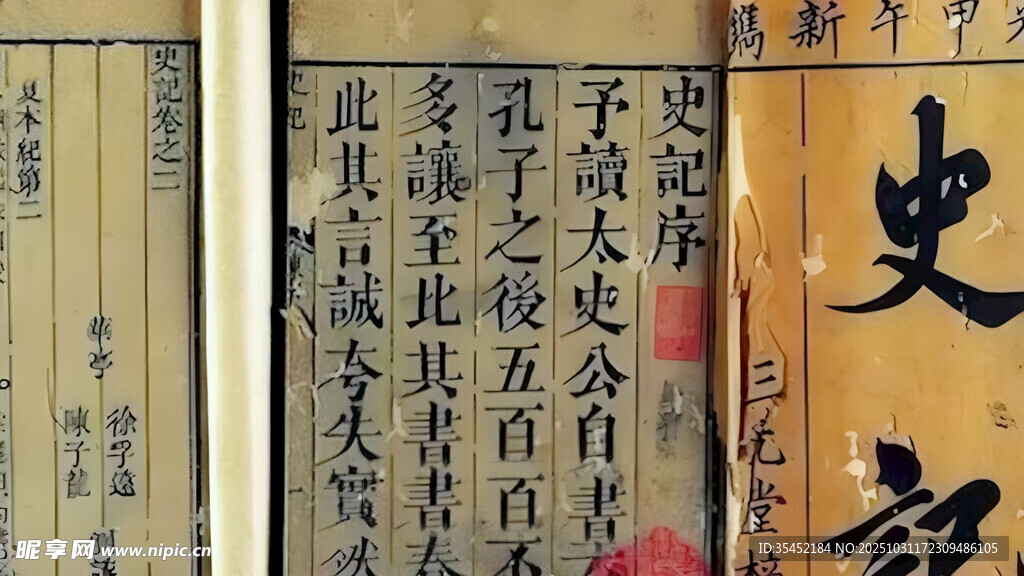 光甲午新鐫
史記
三元堂梓
史記序
予讀太史公自書
孔子之後五百百不
多讓至比其書書春
此其言誠夸失實然
史記
史記卷之二
徐孚遠
陳子龍
夏本紀第二
昵享网 www.nipic.cn
ID:35452184 NO:20251031172309486105